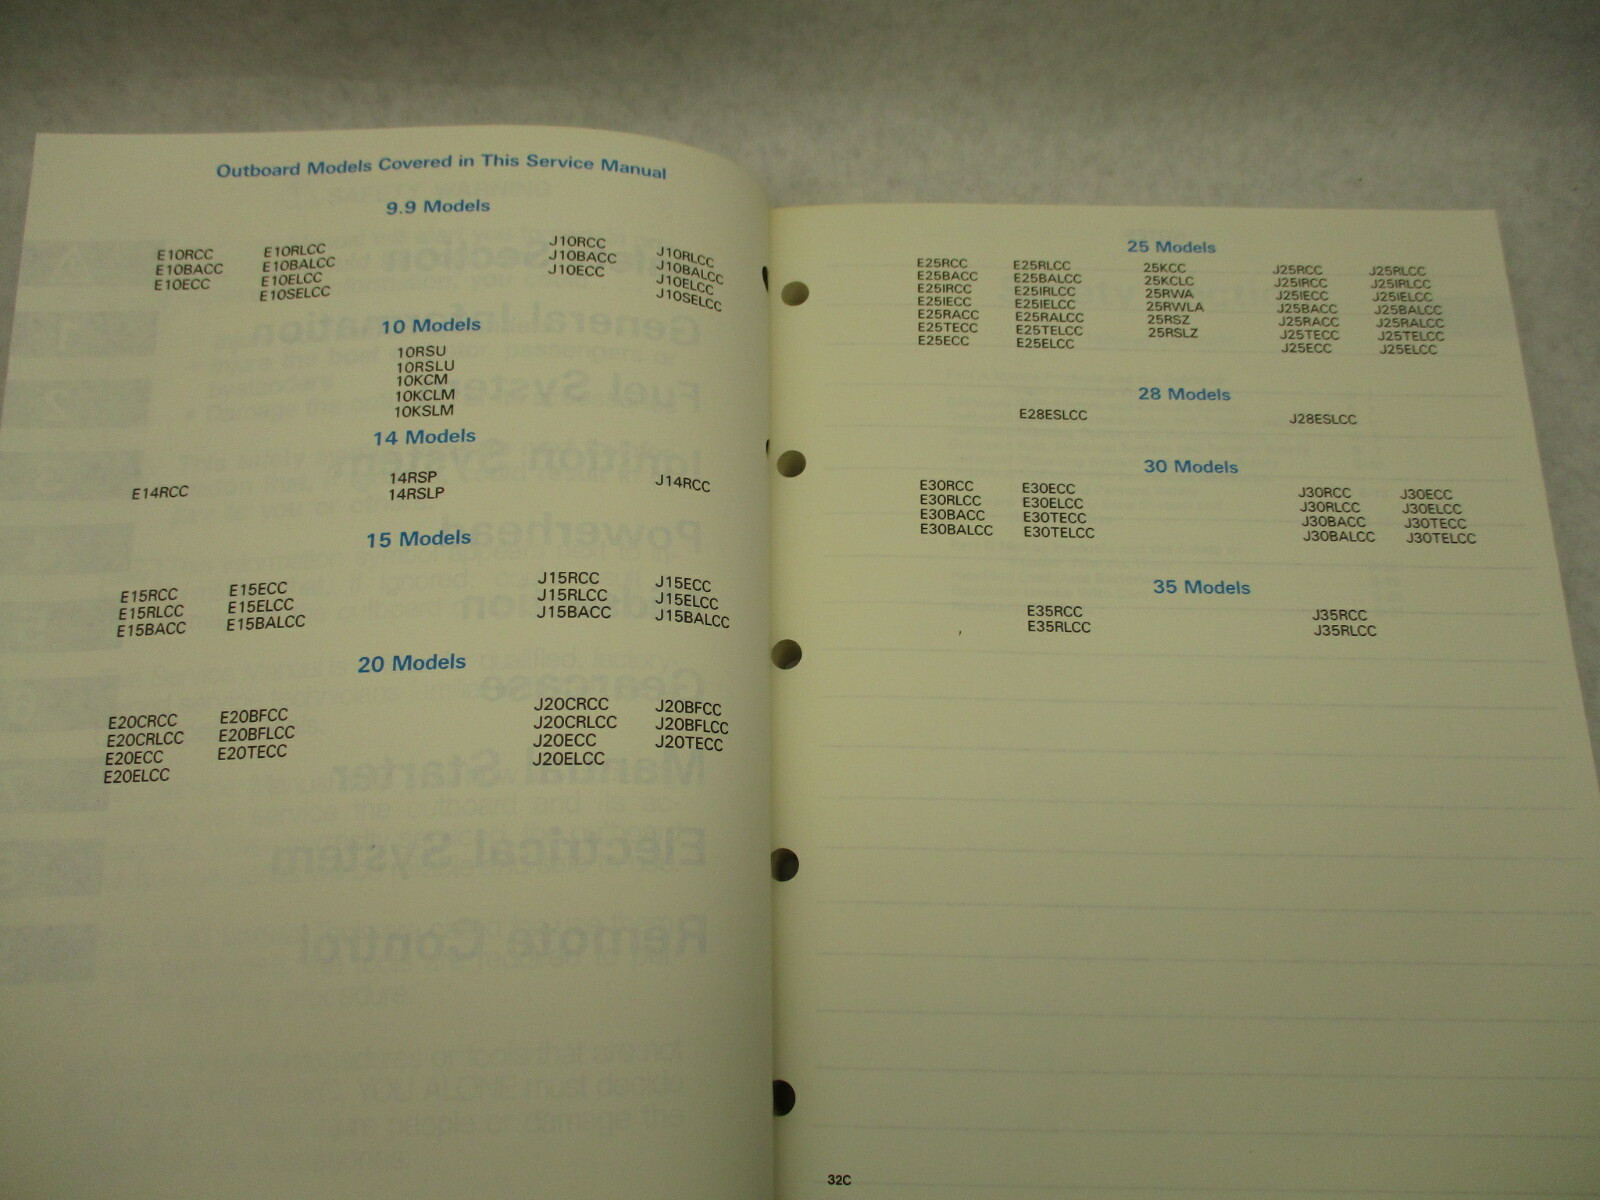 Outboard Models Covered in This Service Manual
9.9 Models
E10RCC E10RLCC J10RCC J10RLCC
E10BACC E10BALCC J10BACC J10BALCC
E10ECC E10ELCC J10ECC J10ELCC
E10SELCC J10SELCC
10 Models
10RSU
10RSLU
10KCM
10KCLM
10KSLM
14 Models
14RSP
E14RCC 14RSLP J14RCC
15 Models
E15RCC E15ECC J15RCC J15ECC
E15RLCC E15ELCC J15RLCC J15ELCC
E15BACC E15BALCC J15BACC J15BALCC
20 Models
E20CRCC E20BFCC J20CRCC J20BFCC
E20CRLCC E20BFLCC J20CRLCC J20BFLCC
E20ECC E20TECC J20ECC J20TECC
E20ELCC J20ELCC
25 Models
E25RCC E25RLCC 25KCC J25RCC J25RLCC
E25BACC E25BALCC 25KCLC J25IRCC J25IRLCC
E25IRCC E25IRLCC 25RWA J25IECC J25IELCC
E25IECC E25IELCC 25RWLA J25BACC J25BALCC
E25RACC E25RALCC 25RSZ J25RACC J25RALCC
E25TECC E25TELCC 25RSLZ J25TECC J25TELCC
E25ECC E25ELCC J25ECC J25ELCC
28 Models
E28ESLCC J28ESLCC
30 Models
E30RCC E30ECC J30RCC J30ECC
E30RLCC E30ELCC J30RLCC J30ELCC
E30BACC E30TECC J30BACC J30TECC
E30BALCC E30TELCC J30BALCC J30TELCC
35 Models
E35RCC J35RCC
E35RLCC J35RLCC
32C